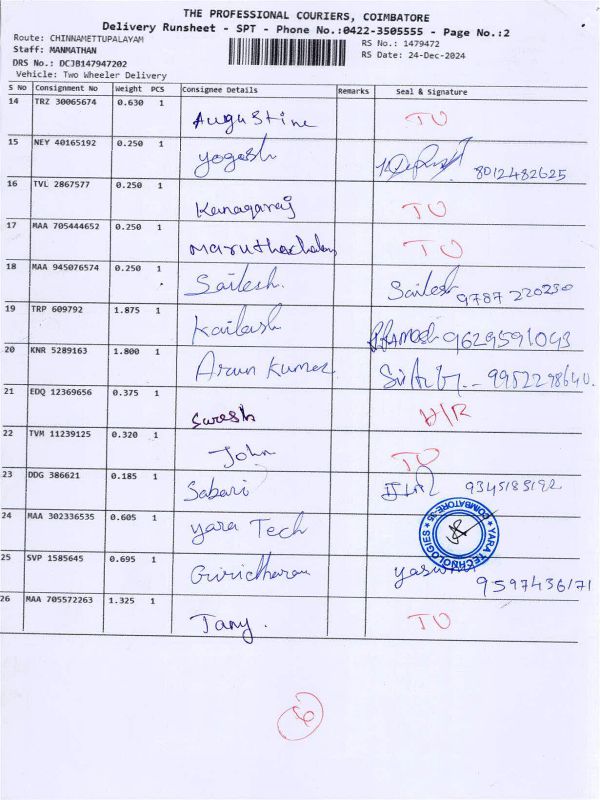 THE PROFESSIONAL COURIERS, COIMBATORE
Delivery Runsheet - SPT - Phone No.:0422-3505555 - Page No.:2
Route: CHINNAMETTUPALAYAM
RS No.: 1479472
Staff: MANMATHAN
RS Date: 24-Dec-2024
DRS No.: DCJB147947202
Vehicle: Two Wheeler Delivery
S No Consignment No Weight PCS Consignee Details Remarks Seal & Signature
14 TRZ 30065674 0.630 1 Augustine TO
15 NEY 40165192 0.250 1 yogesh 8012482625
16 TVL 2867577 0.250 1 Kanagaraj TO
17 MAA 705444652 0.250 1 Maruthachalam TO
18 MAA 945076574 0.250 1 Sailesh. Sailesh 9787 220230
19 TRP 609792 1.875 1 Kailash 9629591093
20 KNR 5289163 1.800 1 Arun Kumar 9952298640.
21 EDQ 12369656 0.375 1 Suresh H/R
22 TVM 11239125 0.320 1 John TO
23 DDG 386621 0.185 1 Sabari 9345185192
24 MAA 302336535 0.605 1 Yara Tech YARA TECHNOLOGIES COIMBATORE-35
25 SVP 1585645 0.695 1 Giridharan 9597436171
26 MAA 705572263 1.325 1 Tany. TO
6